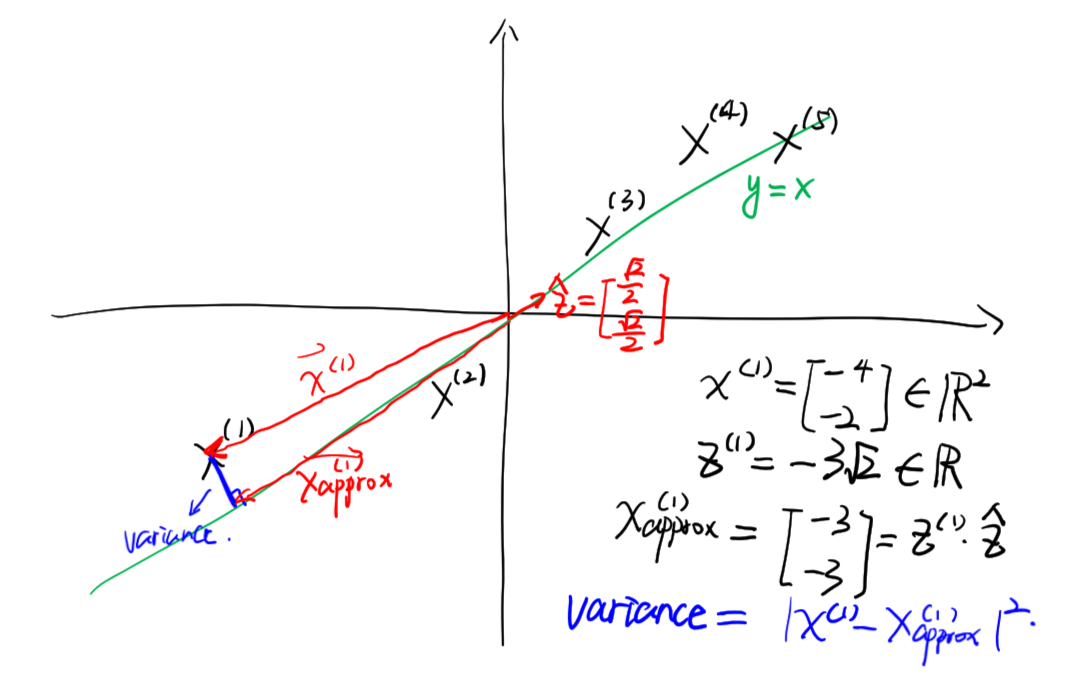 X⁽⁴⁾
X⁽⁵⁾
y = x
X⁽³⁾
ẑ = [√2/2 √2/2]
x⃗⁽¹⁾
X⁽²⁾
X⁽¹⁾
X⃗approx⁽¹⁾
variance.
x⁽¹⁾ = [-4 -2] ∈ ℝ²
z⁽¹⁾ = -3√2 ∈ ℝ
Xapprox⁽¹⁾ = [-3 -3] = z⁽¹⁾· ẑ
variance = |x⁽¹⁾ - Xapprox⁽¹⁾|².